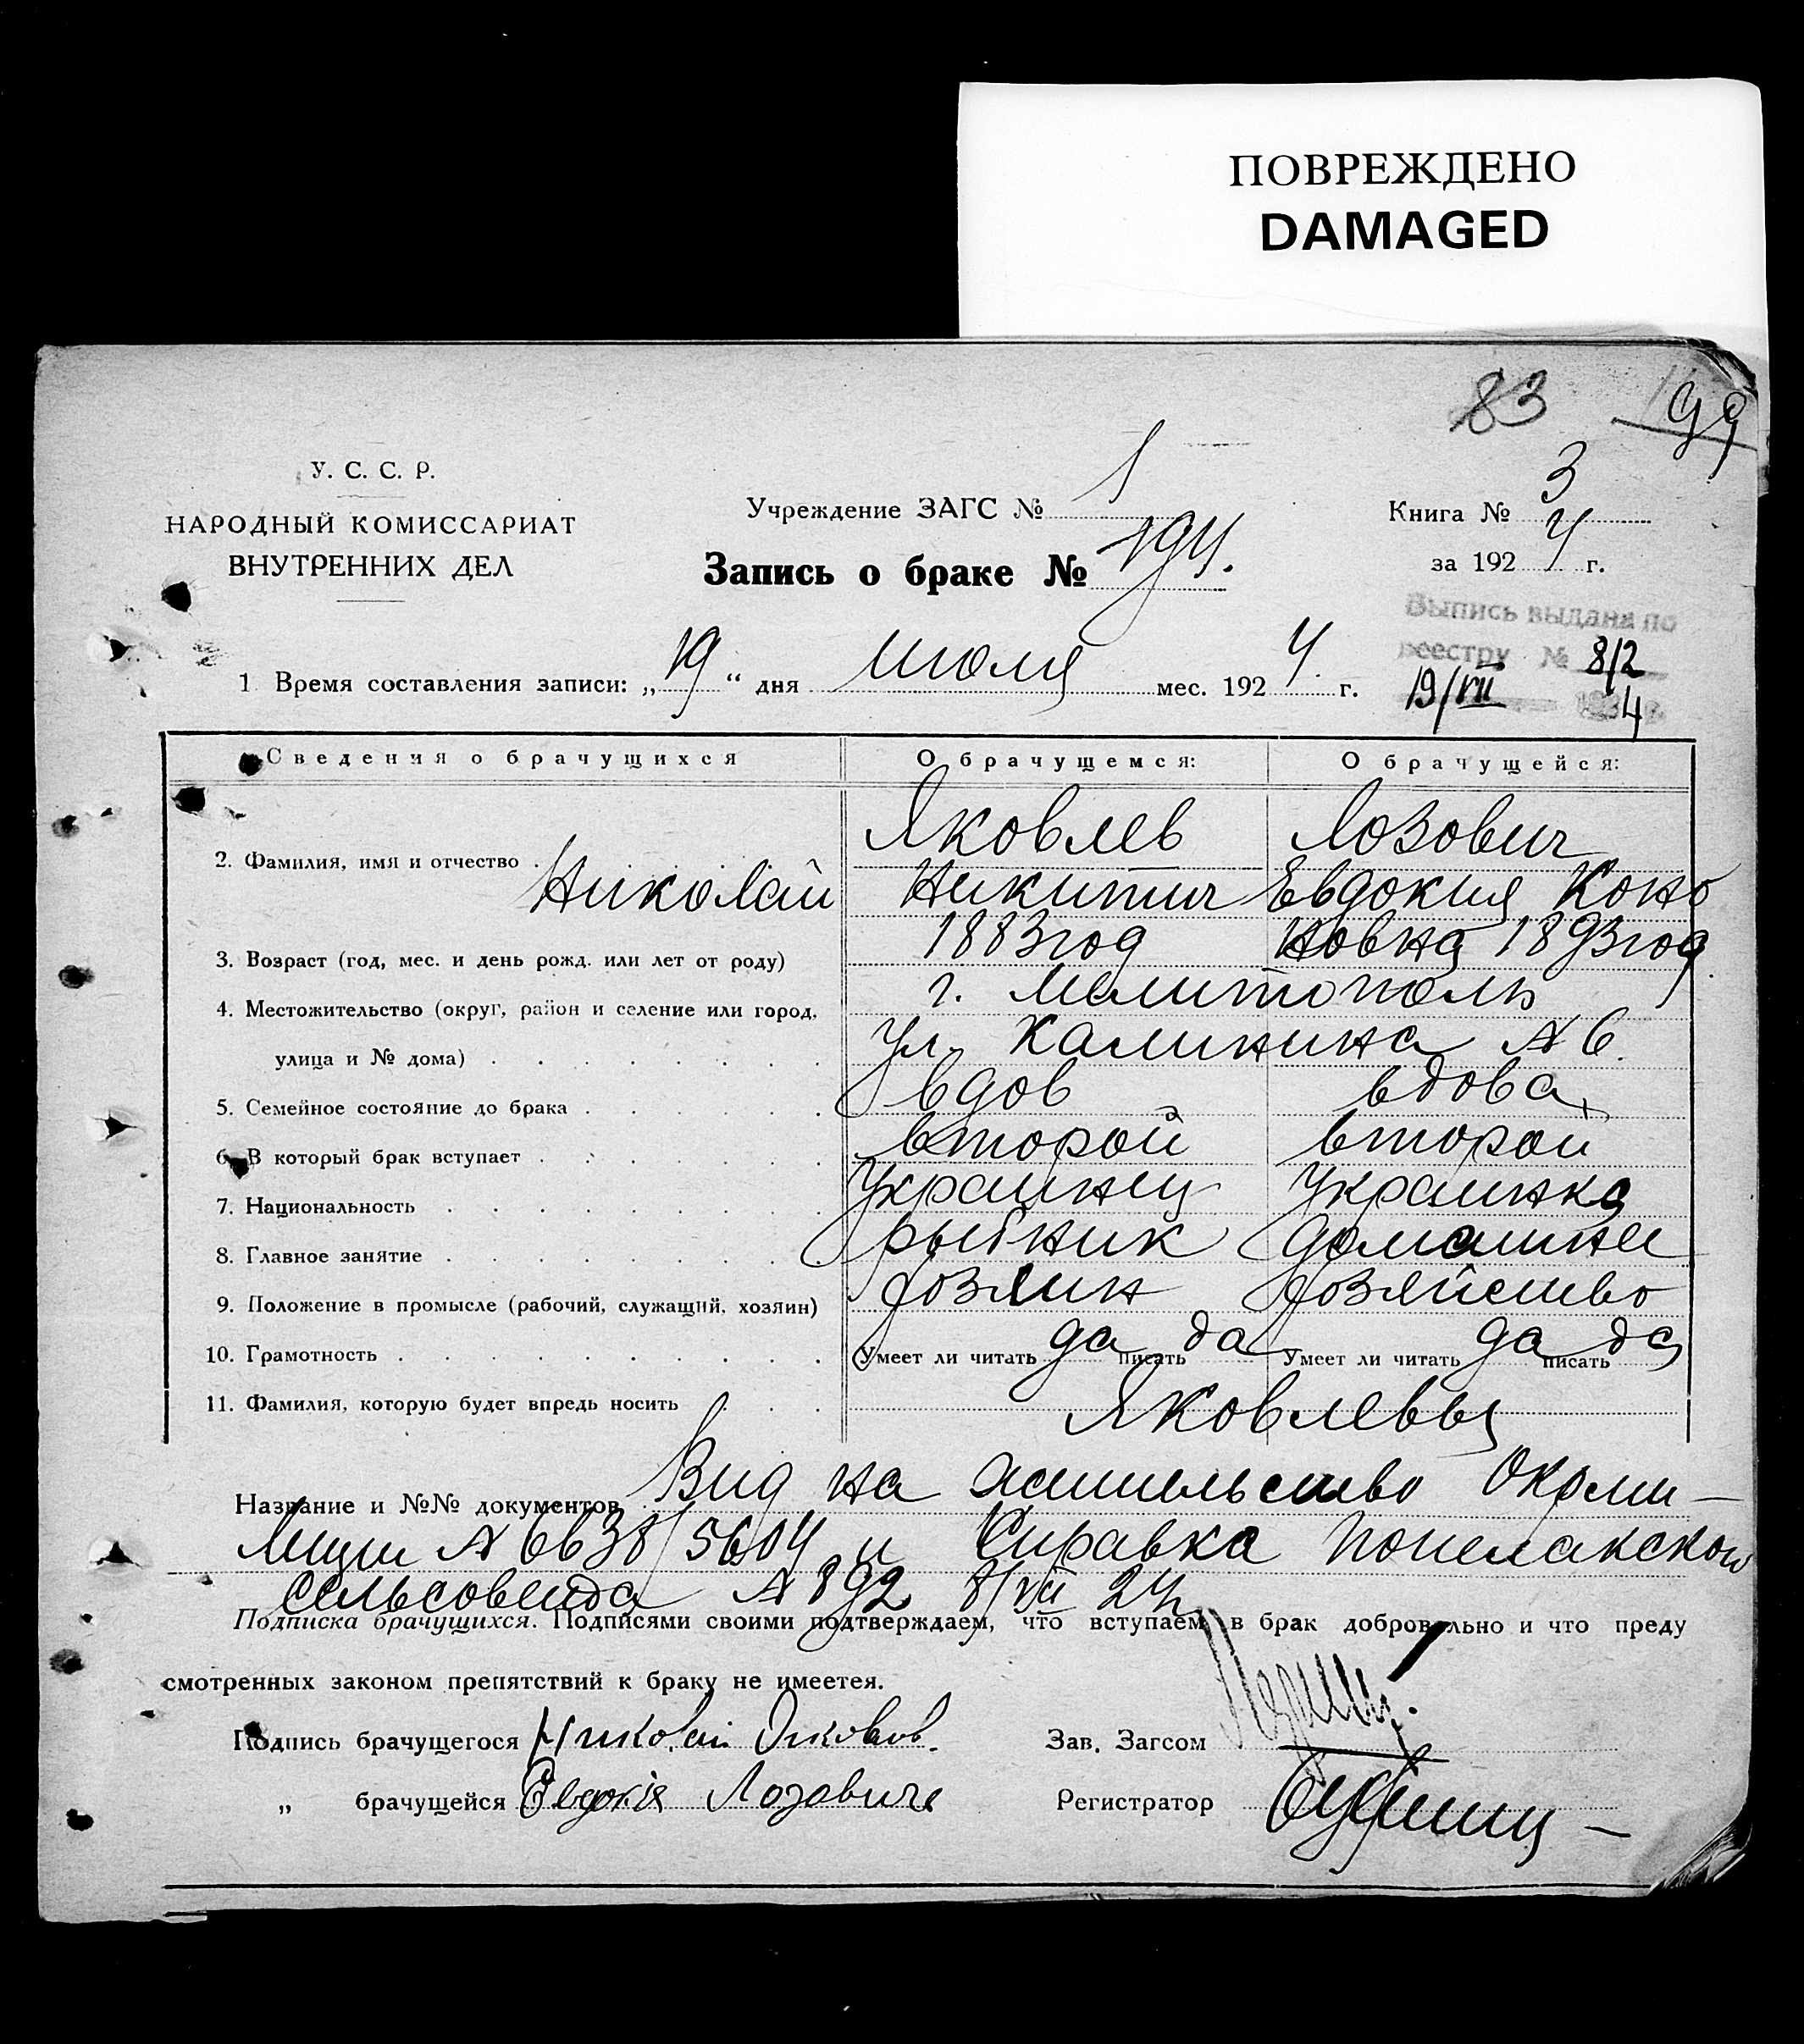 ПОВРЕЖДЕНО
DAMAGED
83 99
У. С. С. Р.
НАРОДНЫЙ КОМИССАРИАТ
ВНУТРЕННИХ ДЕЛ
Учреждение ЗАГС № 1
Запись о браке № 194.
Книга № 3
за 1924 г.
Выпись выдана по
реестру № 812
19/VII 4
1 Время составления записи: „19“ дня июля мес. 1924. г.
Сведения о брачущихся О брачущемся: О брачущейся:
2. Фамилия, имя и отчество Яковлев Лозович
Николай Никитич Евдокия Коно
3. Возраст (год, мес. и день рожд. или лет от роду) 1883 год новна 1893 год
4. Местожительство (округ, район и селение или город, г. Мелитополь
улица и № дома) ул. Калинина № 6.
5. Семейное состояние до брака вдов вдова
6. В который брак вступает второй второй
7. Национальность Украинец Украинка
8. Главное занятие рыбник домашнее
9. Положение в промысле (рабочий, служащий, хозяин) хозяин хозяйство
10. Грамотность Умеет ли читать да писать да Умеет ли читать да писать да
11. Фамилия, которую будет впредь носить Яковлевы
Название и №№ документов Вид на жительство Окрми-
лиции № 6638/5604 и Справка
сельсовета № 892 8/VII 24
Подписка брачущихся. Подписями своими подтверждаем, что вступаем в брак добровольно и что преду
смотренных законом препятствий к браку не имеется.
Подпись брачущегося Николай Яковлев. Зав. Загсом
„ брачущейся Евдокія Лозович Регистратор